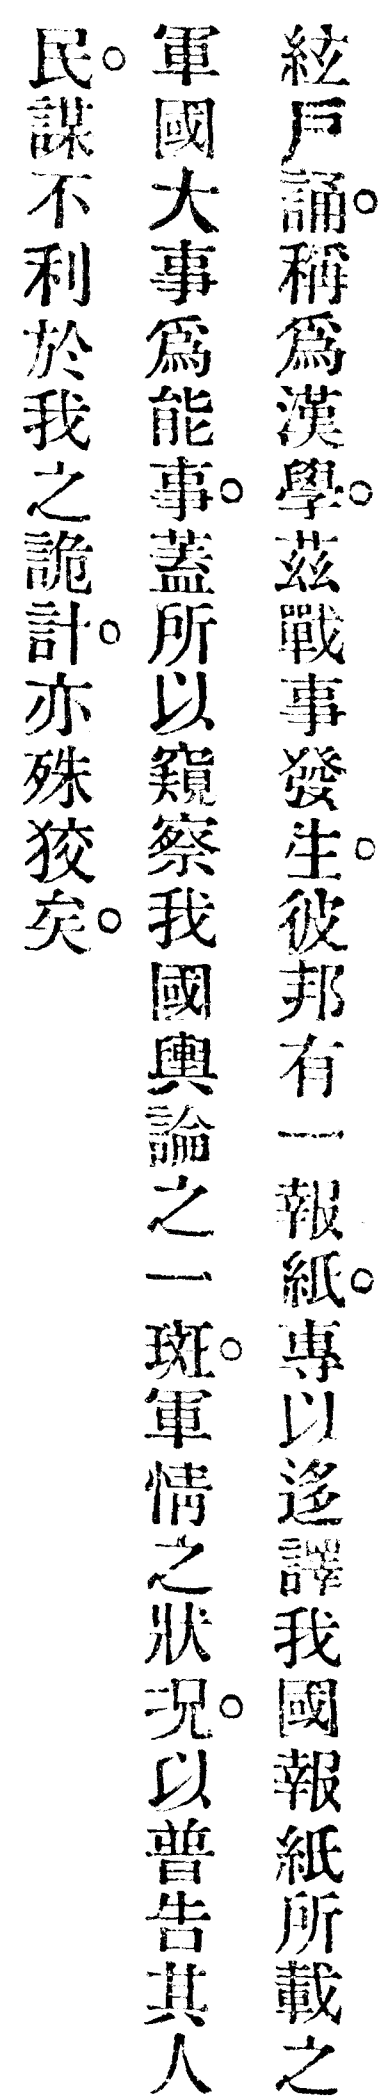 絃戶誦。稱爲漢學。茲戰事發生。彼邦有一報紙。專以迻譯我國報紙所載之
軍國大事爲能事。蓋所以窺察我國輿論之一斑。軍情之狀況。以普告其人
民。謀不利於我之詭計。亦殊狡矣。